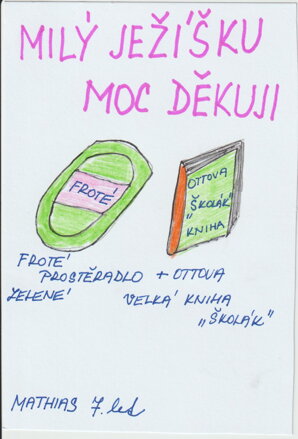 MILÝ JEŽÍŠKU
MOC DĚKUJI
FROTÉ
OTTOVA
„ŠKOLÁK"
KNIHA
FROTÉ
PROSTĚRADLO + OTTOVA
ZELENÉ VELKÁ KNIHA
„ŠKOLÁK"
MATHIAS 7. let